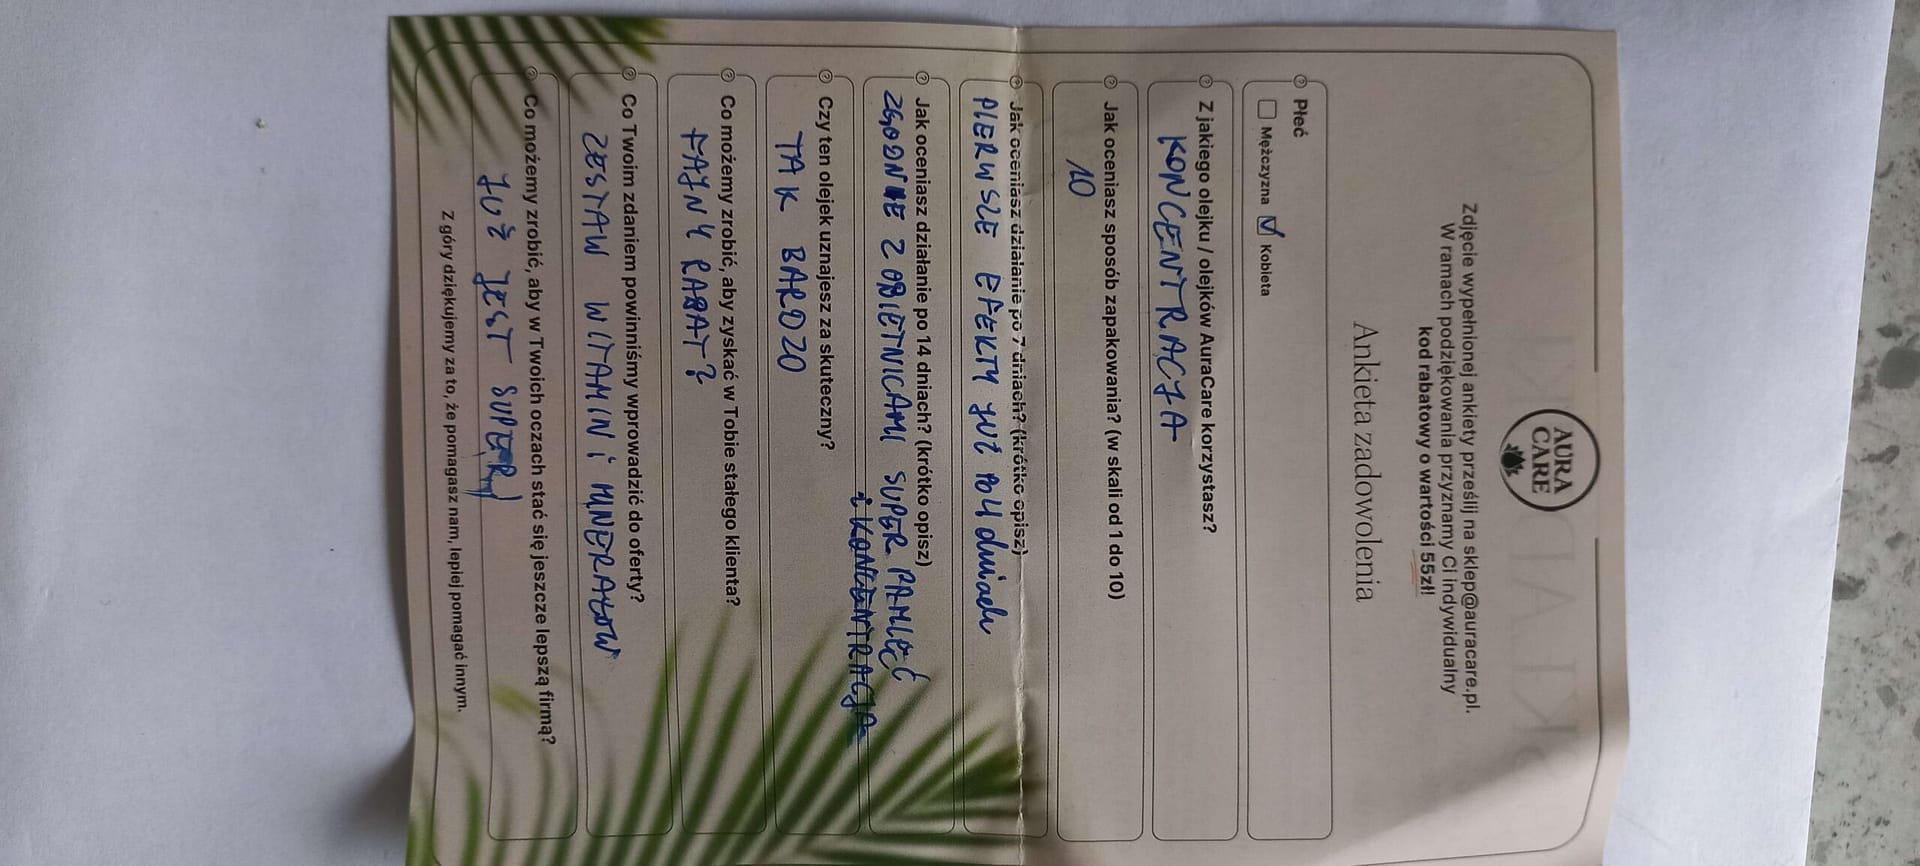 AURA
CARE
Zdjęcie wypełnionej ankiety prześlij na sklep@auracare.pl.
W ramach podziękowania przyznamy Ci indywidualny
kod rabatowy o wartości 55zł!
Ankieta zadowolenia
Płeć
Mężczyzna Kobieta
Z jakiego olejku / olejków AuraCare korzystasz?
KONCENTRACJA
Jak oceniasz sposób zapakowania? (w skali od 1 do 10)
10
Jak oceniasz działanie po 7 dniach? (krótko opisz)
PIERWSZE EFEKTY JUŻ PO 4 dniach
Jak oceniasz działanie po 14 dniach? (krótko opisz)
ZGODNIE Z OBIETNICAMI SUPER PAMIĘĆ
i KONCENTRACJA
Czy ten olejek uznajesz za skuteczny?
TAK BARDZO
Co możemy zrobić, aby zyskać w Tobie stałego klienta?
FAJNY RABAT?
Co Twoim zdaniem powinniśmy wprowadzić do oferty?
ZESTAW WITAMIN i MINERAŁÓW
Co możemy zrobić, aby w Twoich oczach stać się jeszcze lepszą firmą?
JUŻ JEST SUPER
Z góry dziękujemy za to, że pomagasz nam, lepiej pomagać innym.